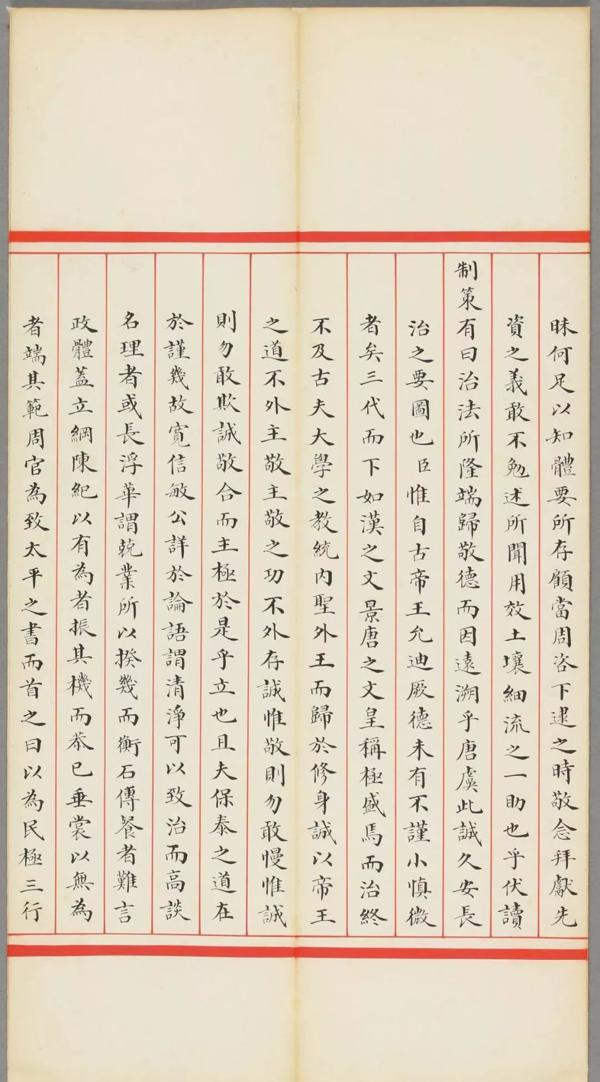 昧何足以知體要所存顧當周咨下逮之時敬念拜獻先
資之義敢不勉述所聞用效土壤細流之一助也乎伏讀
制策有曰治法所隆端歸敬德而因遠溯乎唐虞此誠久安長
治之要圖也臣惟自古帝王允迪厥德未有不謹小慎微
者矣三代而下如漢之文景唐之文皇稱極盛焉而治終
不及古夫大學之教統內聖外王而歸於修身誠以帝王
之道不外主敬主敬之功不外存誠惟敬則勿敢慢惟誠
則勿敢欺誠敬合而主極於是乎立也且夫保泰之道在
於謹幾故寬信敏公詳於論語謂清淨可以致治而高談
名理者或長浮華謂兢業所以揆幾而衡石傳餐者難言
政體蓋立綱陳紀以有為者振其機而恭已垂裳以無為
者端其範周官為致太平之書而首之曰以為民極三行